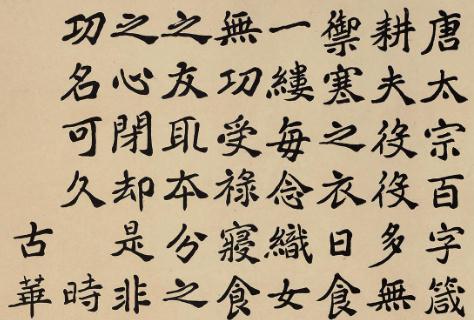 唐太宗百字箴
耕夫役役多無
禦寒之衣日食
一縷每念織女
無功受祿寢食
之友耴本分之
之心閉却是非
功名可久 時
古華